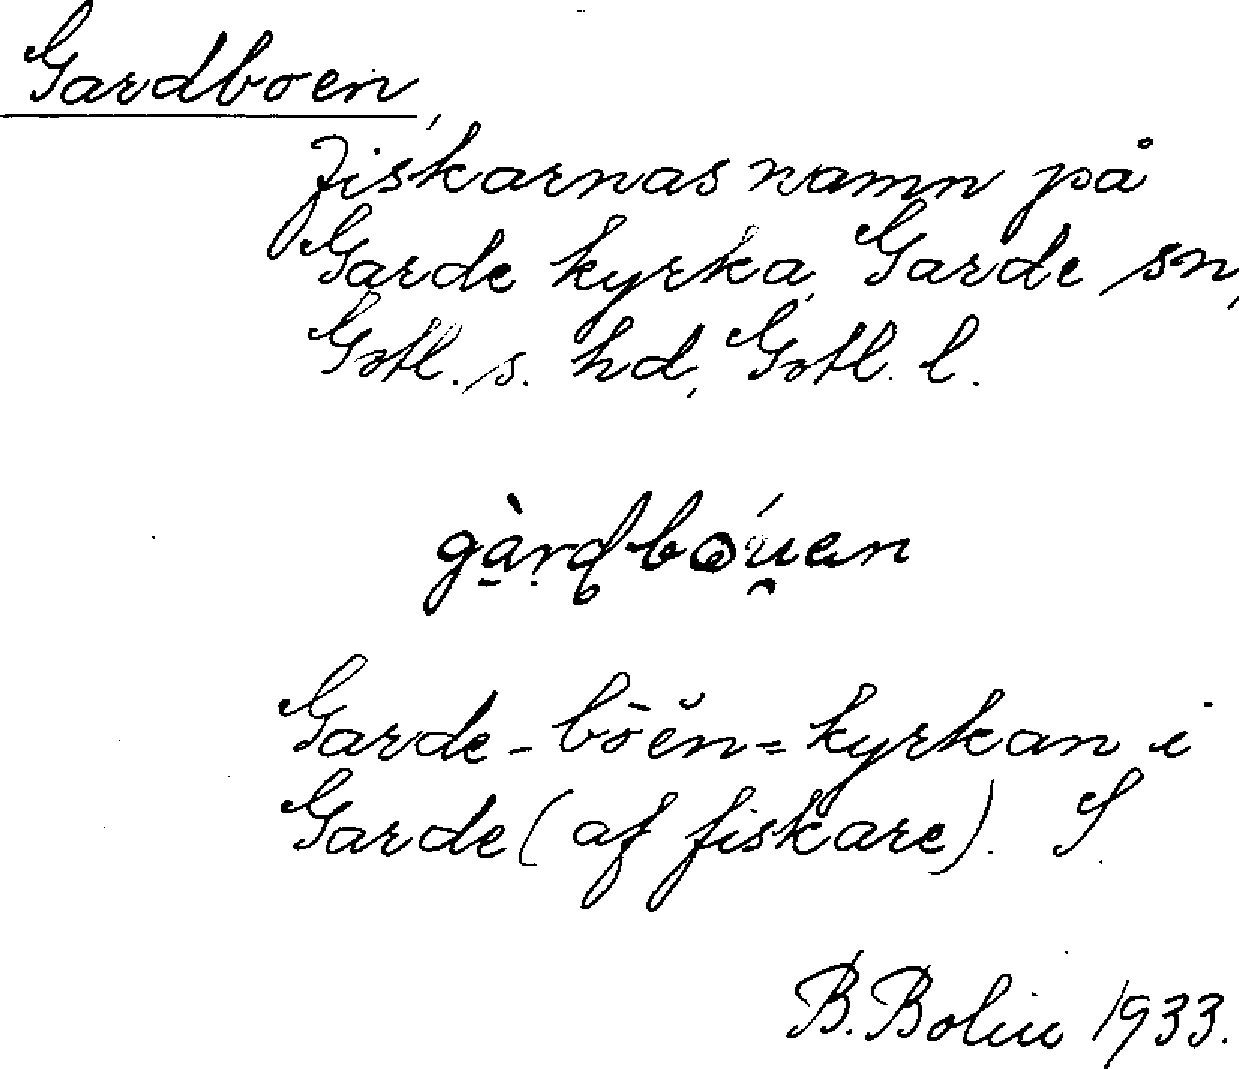 Gardboen,
fiskarnas namn på
Garde kyrka, Garde sn,
Gotl. s. hd, Gotl. l.
Garde-bōĕn = kyrkan i
Garde (af fiskare). S.
B. Bolin 1933.